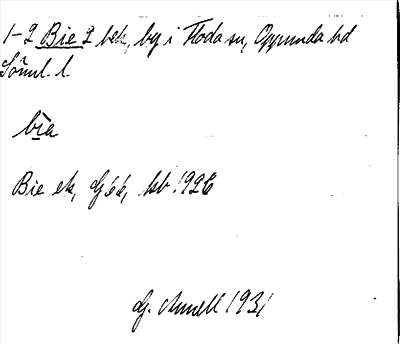 1-2 Bie 2 hek, by i Floda sn, Oppunda hd
Söml. l.
bìa
Bie ek, G 66, kb 1926
G. Annell 1931